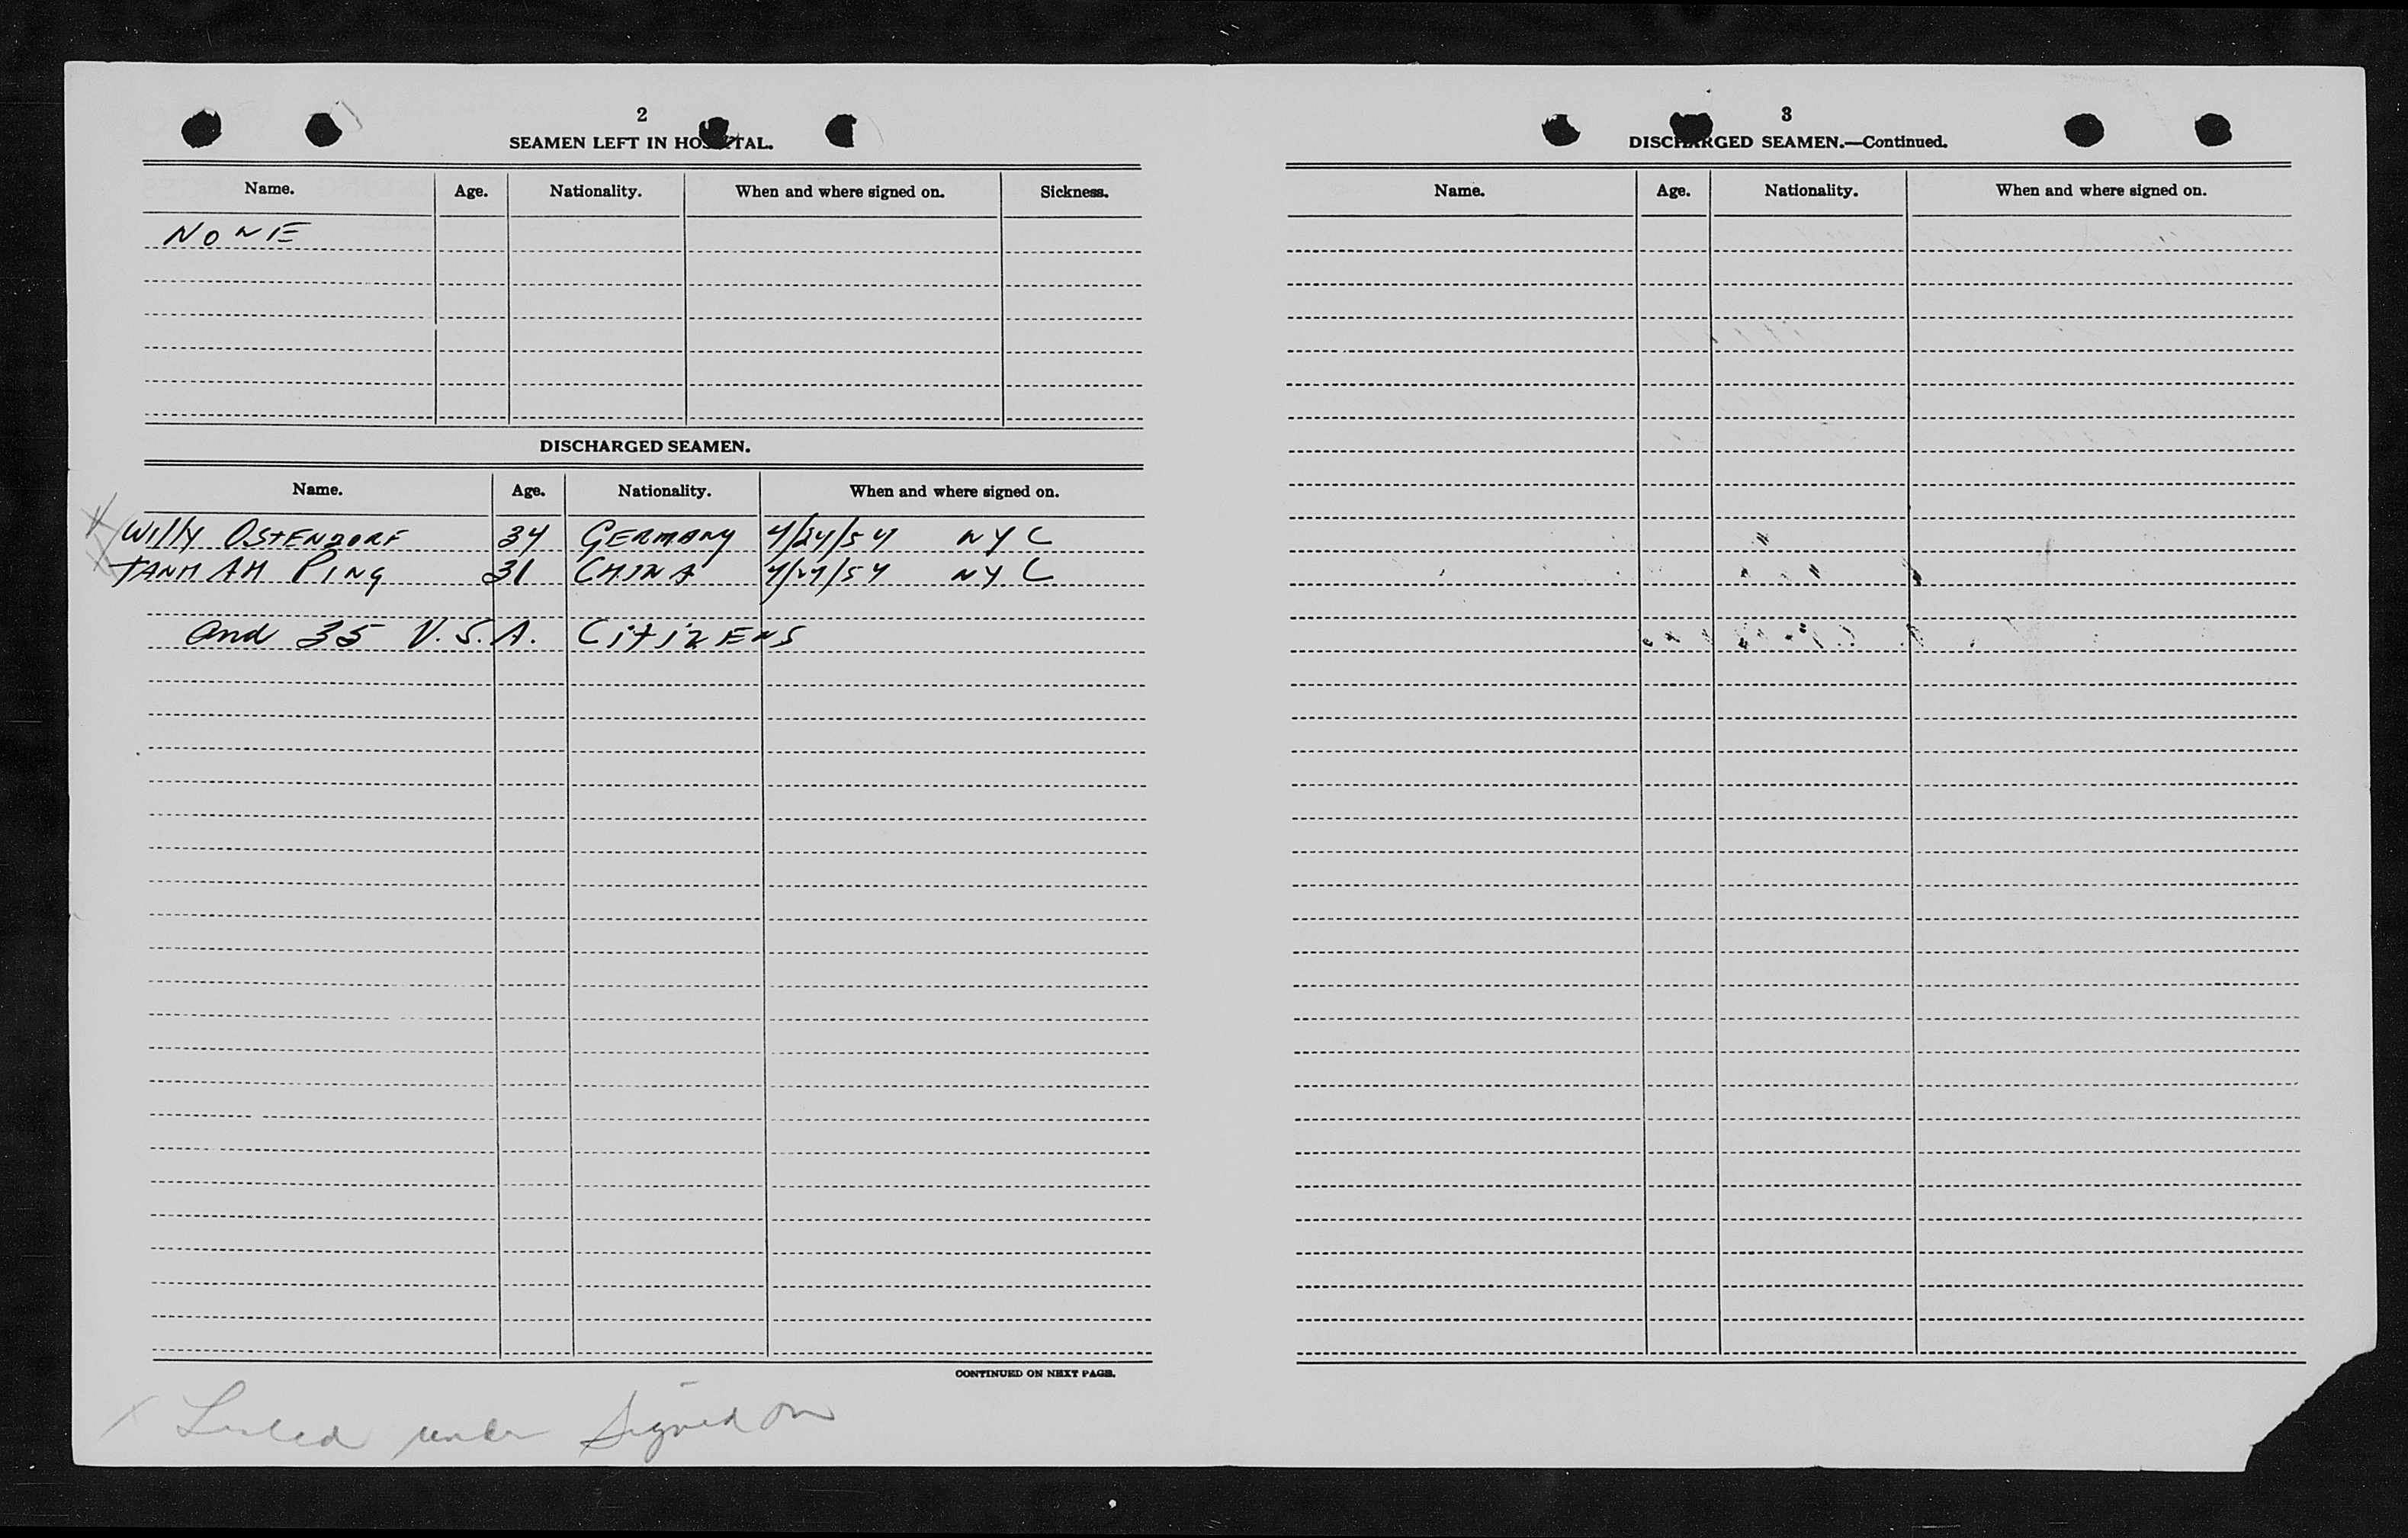 2
SEAMEN LEFT IN HOSPITAL.
Name. Age. Nationality. When and where signed on. Sickness.
NONE
DISCHARGED SEAMEN.
Name. Age. Nationality. When and where signed on.
Willy OSTENDORF 34 GERMANY 4/24/54 NYC
TANH AH PING 31 CHINA 4/24/54 NYC
And 35 U.S.A. CITIZENS
CONTINUED ON NEXT PAGE.
x Listed under Signed on
3
DISCHARGED SEAMEN.—Continued.
Name. Age. Nationality. When and where signed on.